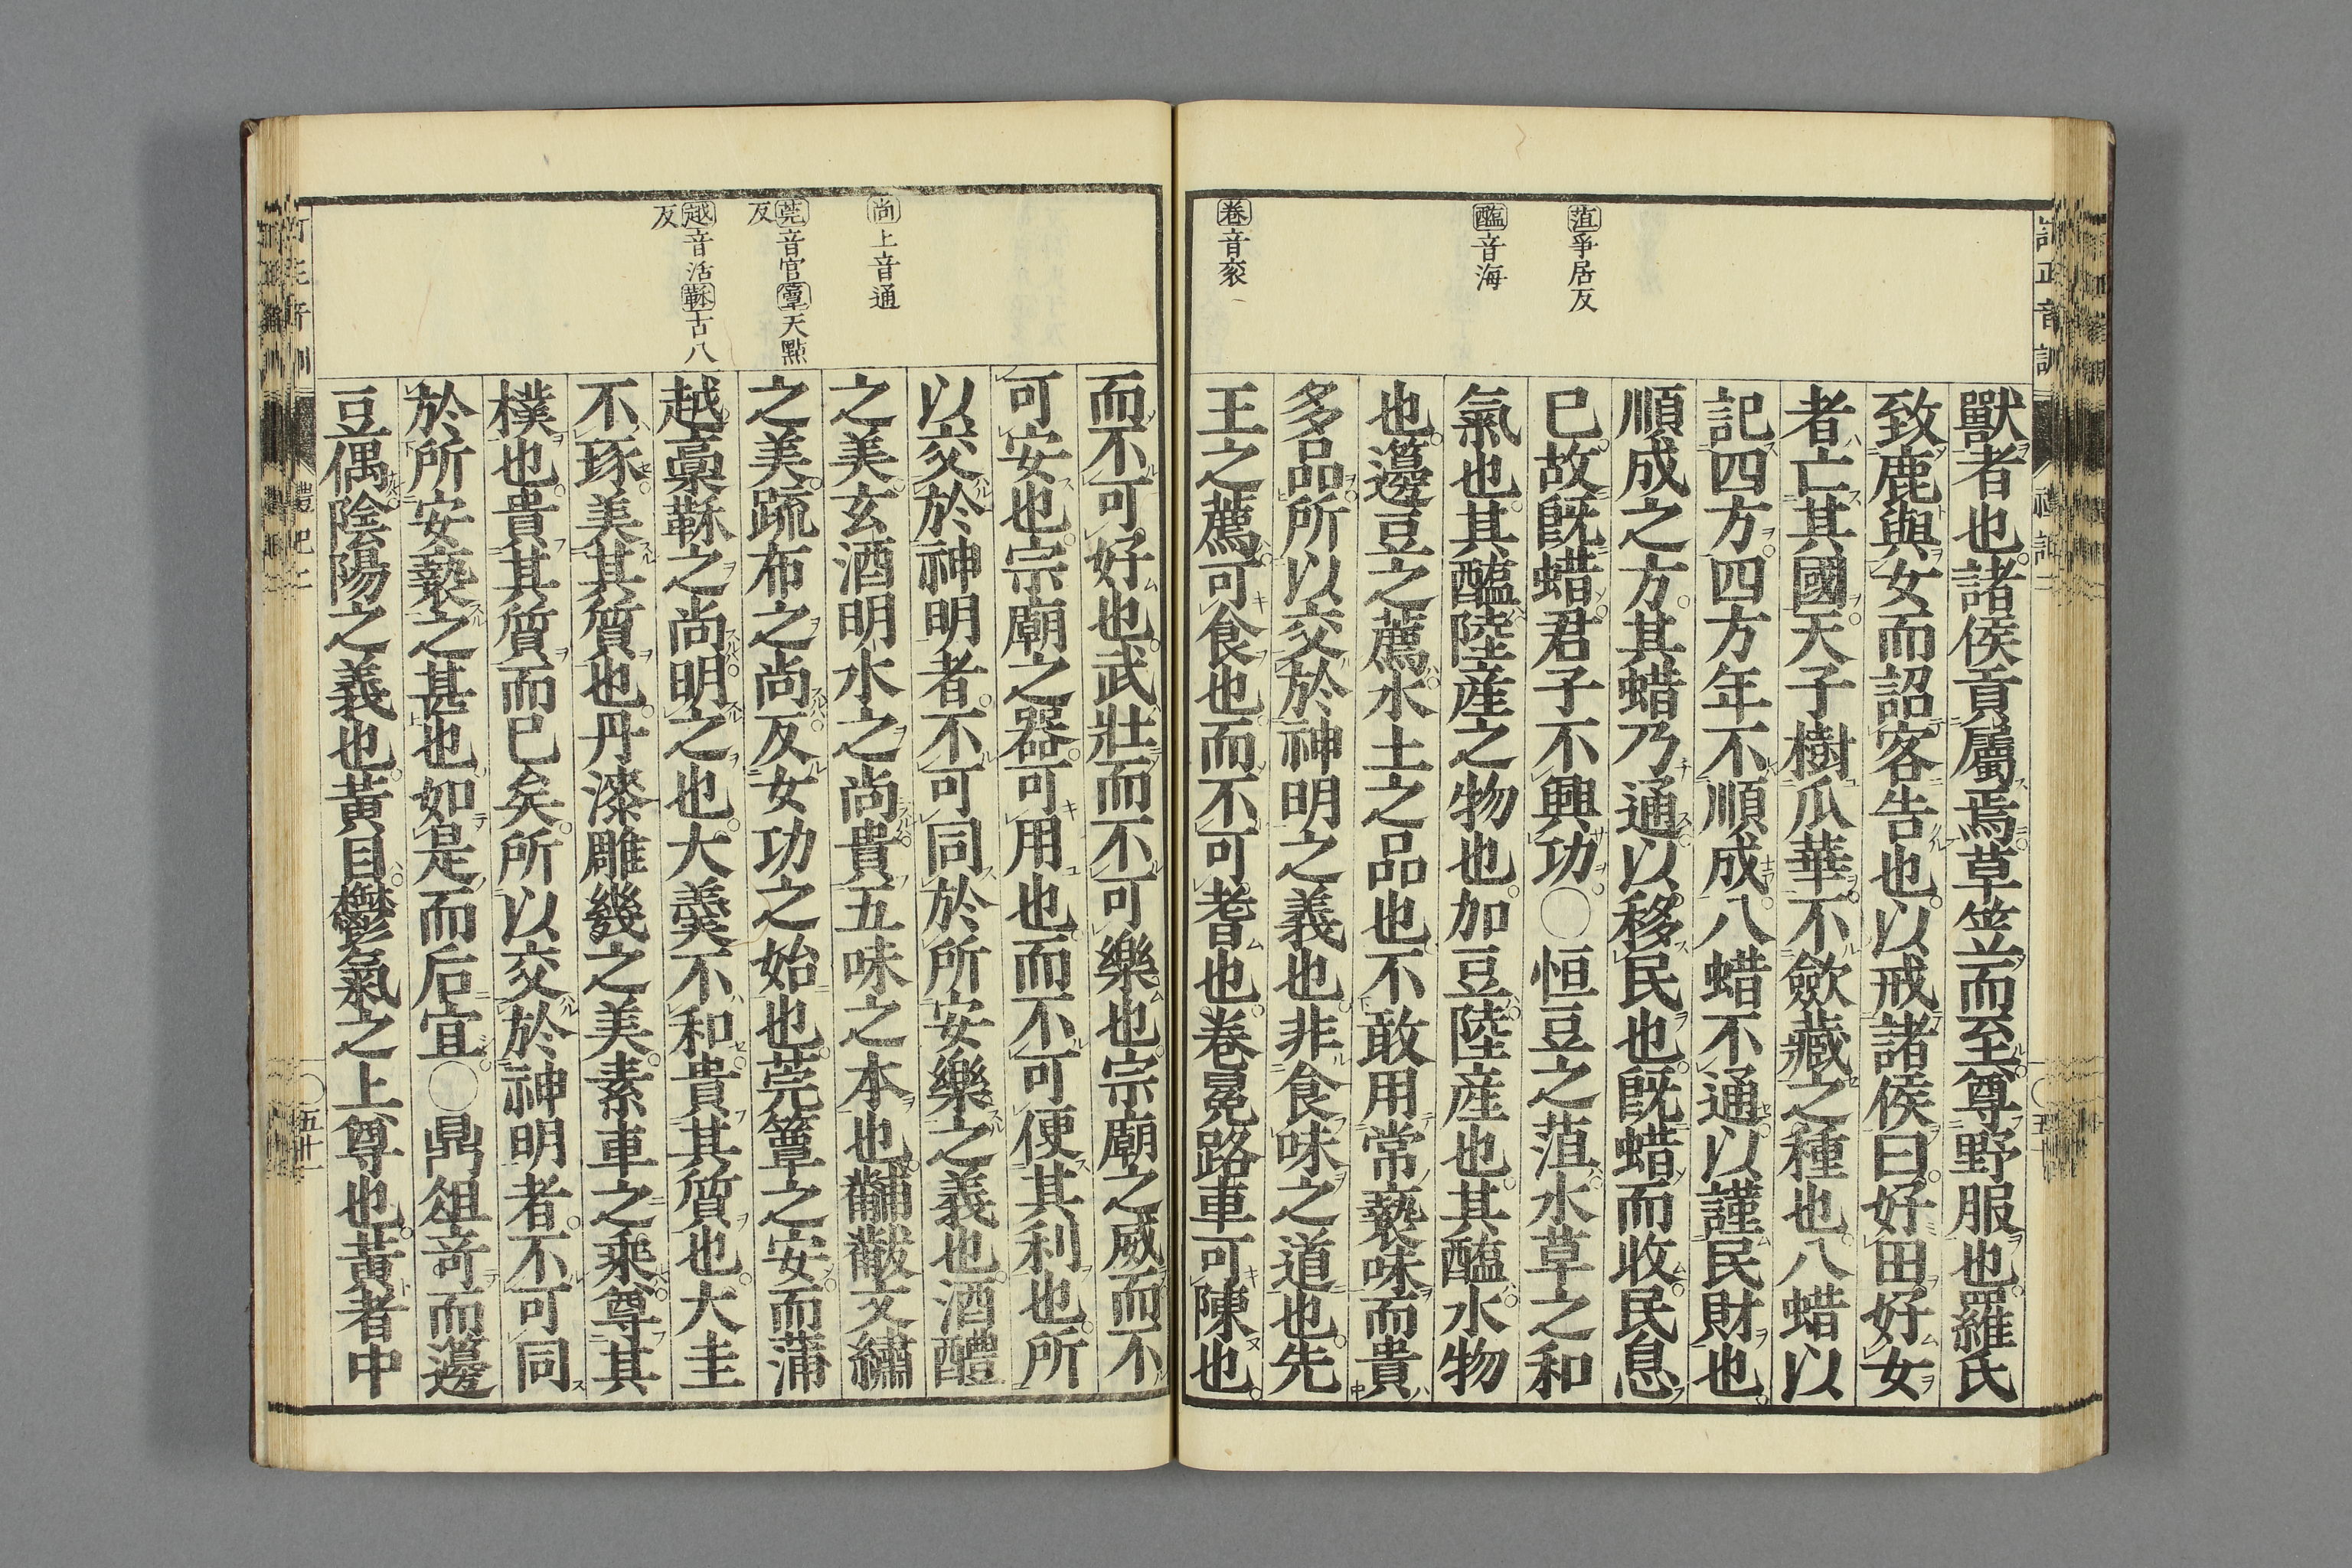 菹爭居反
醢音海
卷音衮
獸者也諸侯貢屬焉草笠而至尊野服也羅氏
致鹿與女而詔客告也以戒諸侯曰好田好女
者亡其國天子樹瓜華不斂藏之種也八蜡以
記四方四方年不順成八蜡不通以謹民財也
順成之方其蜡乃通以移民也既蜡而收民息
已故既蜡君子不興功○恒豆之菹水草之和
氣也其醢陸産之物也加豆陸産也其醢水物
也籩豆之薦水土之品也不敢用常褻味而貴
多品所以交於神明之義也非食味之道也先
王之薦可食也而不可耆也卷冕路車可陳也
尚上音通
莞音官簟天點
反
越音活鞂古八
反
而不可好也武壯而不可樂也宗廟之威而不
可安也宗廟之器可用也而不可便其利也所
以交於神明者不可同於所安樂之義也酒醴
之美玄酒明水之尚貴五味之本也黼黻文繡
之美疏布之尚反女功之始也莞簟之安而蒲
越藁鞂之尚明之也大羹不和貴其質也大圭
不琢美其質也丹漆雕幾之美素車之乘尊其
樸也貴其質而已矣所以交於神明者不可同
於所安褻之甚也如是而后宜○鼎俎奇而籩
豆偶陰陽之義也黃目鬱氣之上尊也黃者中
禮記上
五十一